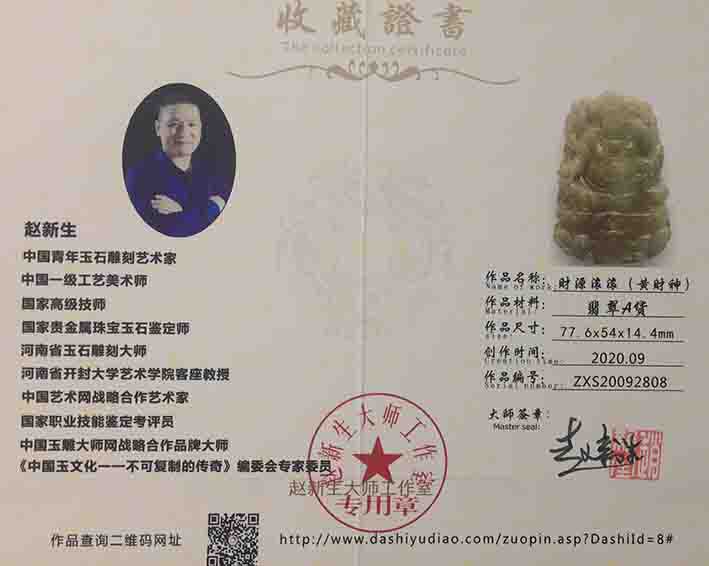 收藏證書
The collection certificate
赵新生
中国青年玉石雕刻艺术家
中国一级工艺美术师
国家高级技师
国家贵金属珠宝玉石鉴定师
河南省玉石雕刻大师
河南省开封大学艺术学院客座教授
中国艺术网战略合作艺术家
国家职业技能鉴定考评员
中国玉雕大师网战略合作品牌大师
《中国玉文化一一不可复制的传奇》编委会专家委员
作品名称: 财源滚滚(黄财神)
Name of work:
作品材料: 翡翠A货
Material:
作品尺寸: 77.6x54x14.4mm
size:
创作时间: 2020.09
Creation time:
作品编号: ZXS20092808
Serial number:
大师签章:
Master seal:
赵新生大师工作室
赵新生大师工作室
专用章
作品查询二维码网址
http://www.dashiyudiao.com/zuopin.asp?DashiId=8#